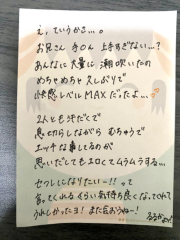 え、ていうかさ…。
お兄さん 手のん 上手すぎない…?
あんなに 大量に 潮吹いたの
めちゃめちゃ 久しぶりで
快感レベルMAXだったよ…♡
2人とも汗だくで
息切らしながら むちゅうで
エッチな事してるのが
思いだしてもエロくてムラムラする…
セフレになりたいー!! って
言ってくれるくらい気持ち良くなってくれて
うれしかったヨ! また会おうねー!